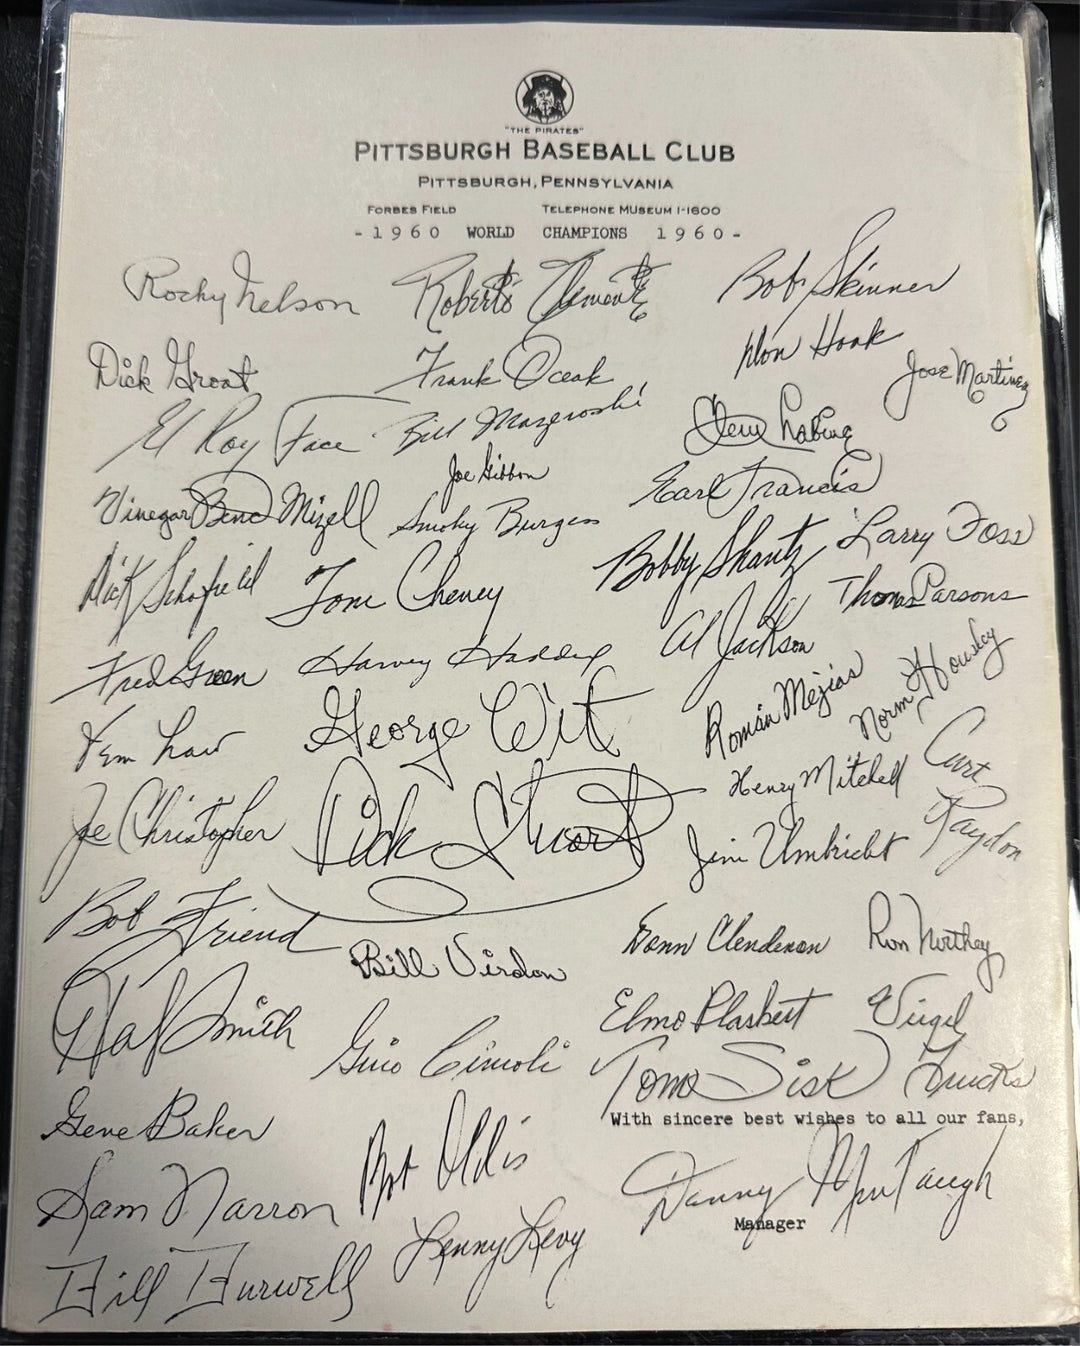 "THE PIRATES"
PITTSBURGH BASEBALL CLUB
PITTSBURGH, PENNSYLVANIA
FORBES FIELD TELEPHONE MUSEUM 1-1600
-1960 WORLD CHAMPIONS 1960-
Rocky Nelson Roberto Clemente Bob Skinner
Dick Groat Frank Oceak Don Hoak Jose Martinez
El Roy Face Bill Mazeroski Clem Labine
Joe Gibbon Earl Francis
Vinegar Bend Mizell Smoky Burgess
Dick Schofield Tom Cheney Bobby Shantz Larry Foss
Thomas Parsons
Fred Green Harvey Haddix Al Jackson
Vern Law George Witt Román Mejias Norm Housley
Henry Mitchell Curt Raydon
Joe Christopher Dick Stuart Jim Umbricht
Bob Friend Bill Virdon Donn Clendenon Ron Northey
Hal Smith Gino Cimoli Elmo Plaskett Virgil Trucks
Tom Sisk
With sincere best wishes to all our fans,
Gene Baker Bob Oldis
Sam Narron Danny Murtaugh
Manager
Bill Burwell Lenny Levy